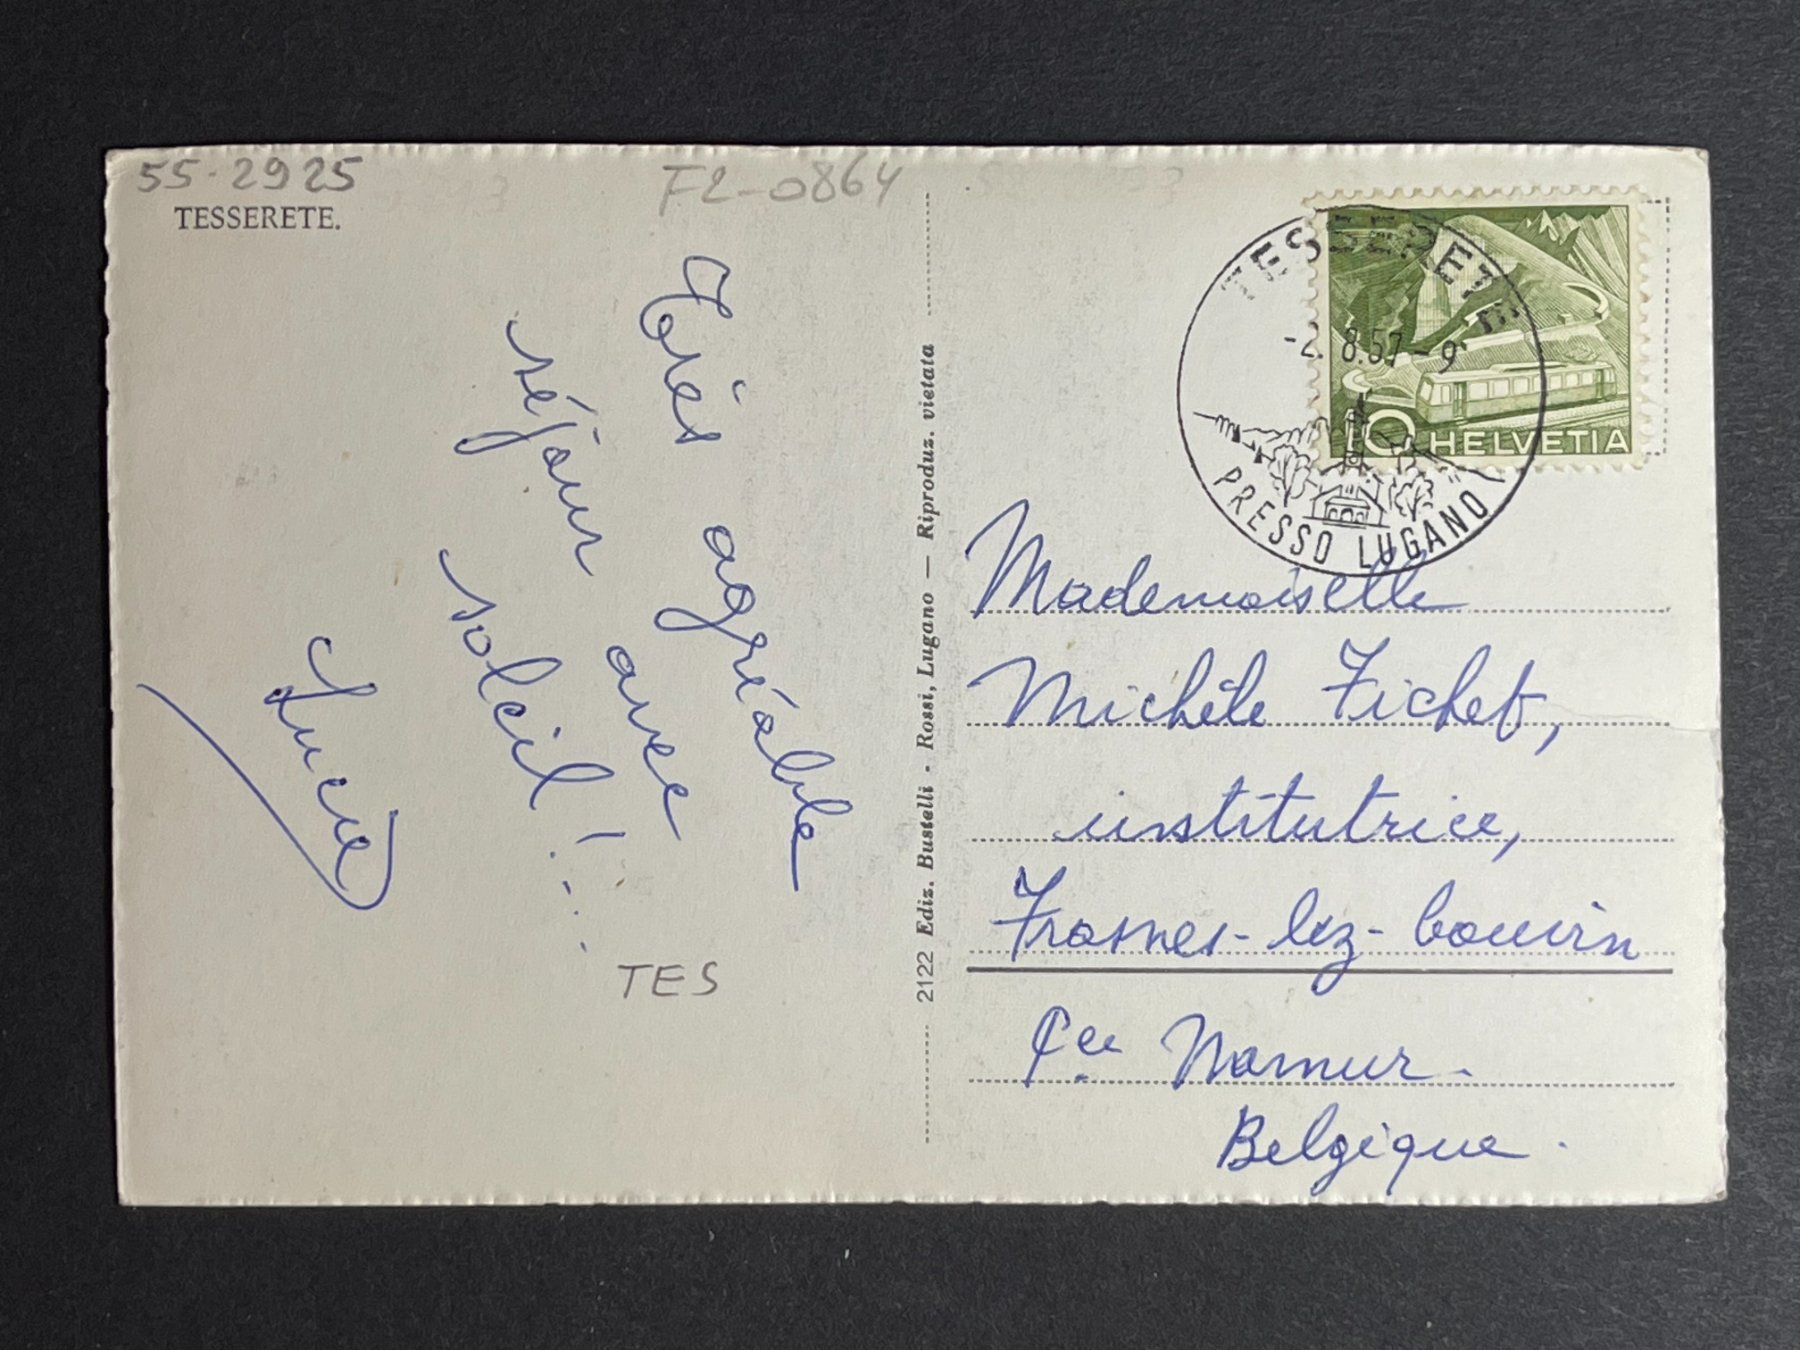 55-2925
TESSERETE.
F2-0864
Très agréable
séjour avec
soleil!...
TES
2122 Ediz. Bustelli - Rossi, Lugano — Riproduz. vietata
TESSERETE
-2. 8.57-9
PRESSO LUGANO
10 HELVETIA
Mademoiselle
Michèle Fichet,
institutrice,
Frasnes-lez-Couvin
Pce Namur.
Belgique.